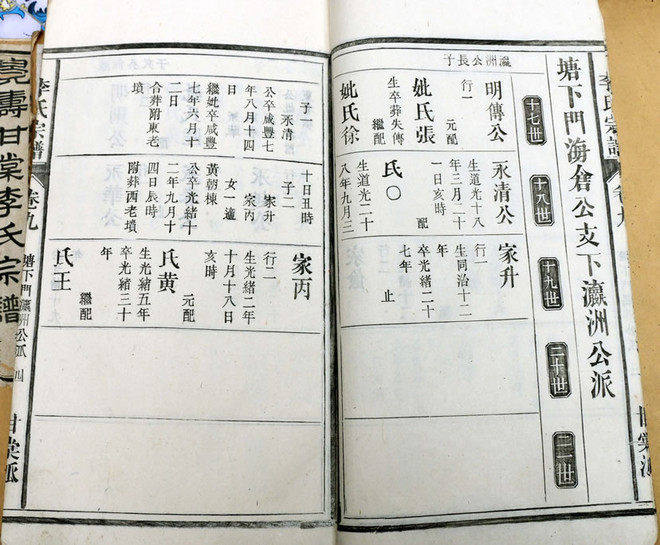 李氏宗譜
卷九
甘棠派
塘下門海倉公支下瀛洲公派
十七世
十八世
十九世
二十世
二一世
瀛洲公長子
明傳公
行一
元配
妣氏張
生卒葬失傳
繼配
妣氏徐
永清公
生道光十八
年三月二十
一日亥時
配
氏〇
生道光二十
八年九月三
家升
行一
生同治十二
年
卒光緒二十
七年
止
子一
永清
公卒咸豐七
年八月十四
繼妣卒咸豐
七年六月十
二日
合葬附東老
墳
十日丑時
子二
家升
家丙
女一適
黃朝棟
公卒光緒十
二年九月十
四日辰時
附葬西老墳
家丙
行二
生光緒二年
十月十八日
亥時
元配
氏黃
生光緒五年
卒光緒三十
年
繼配
氏王
李氏宗譜
卷九
塘下門瀛洲公派
四
甘棠派
壽甘棠李氏宗譜